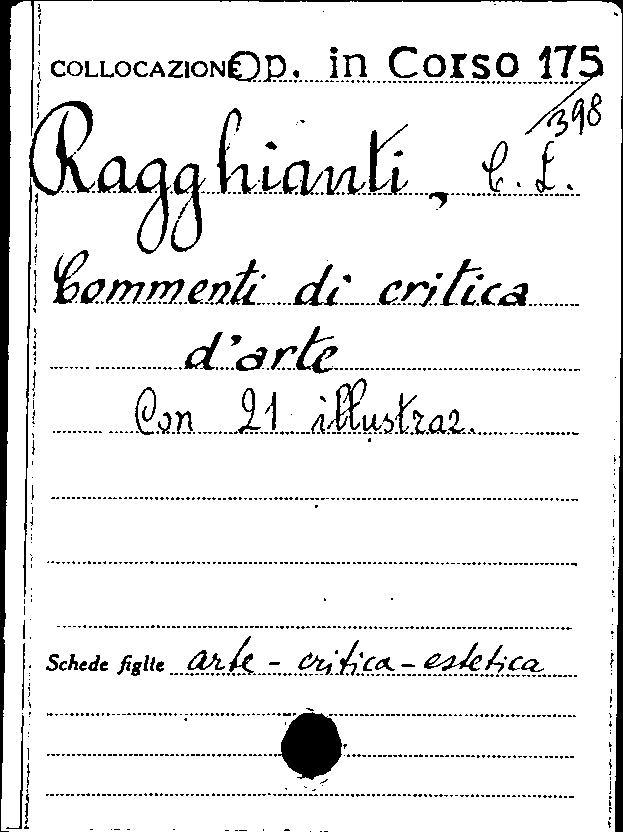 COLLOCAZIONE Op. in Corso 175
/398
Ragghianti, C. L.
Commenti di critica
d'arte
Con 21 illustraz.
Schede figlie arte - critica - estetica